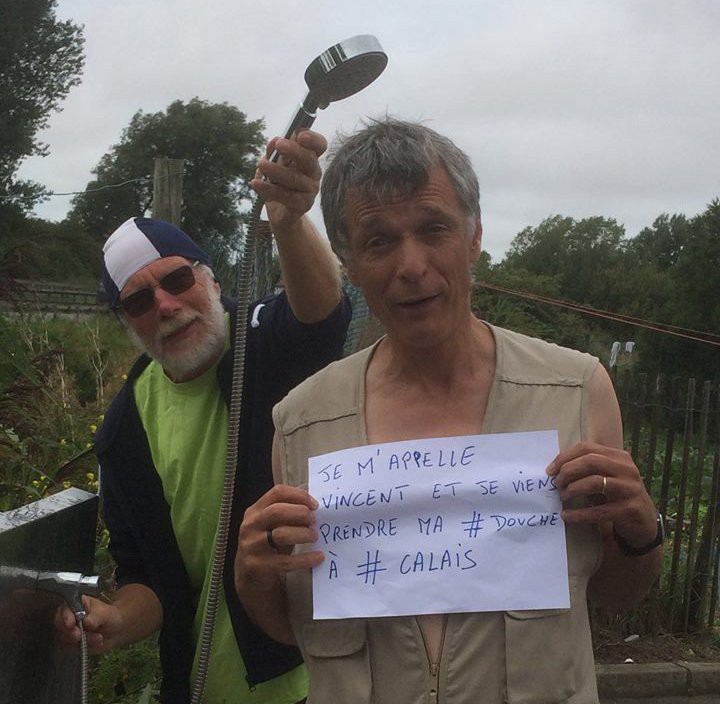 JE M'APPELLE
VINCENT ET JE VIENS
PRENDRE MA # DOUCHE
À # CALAIS